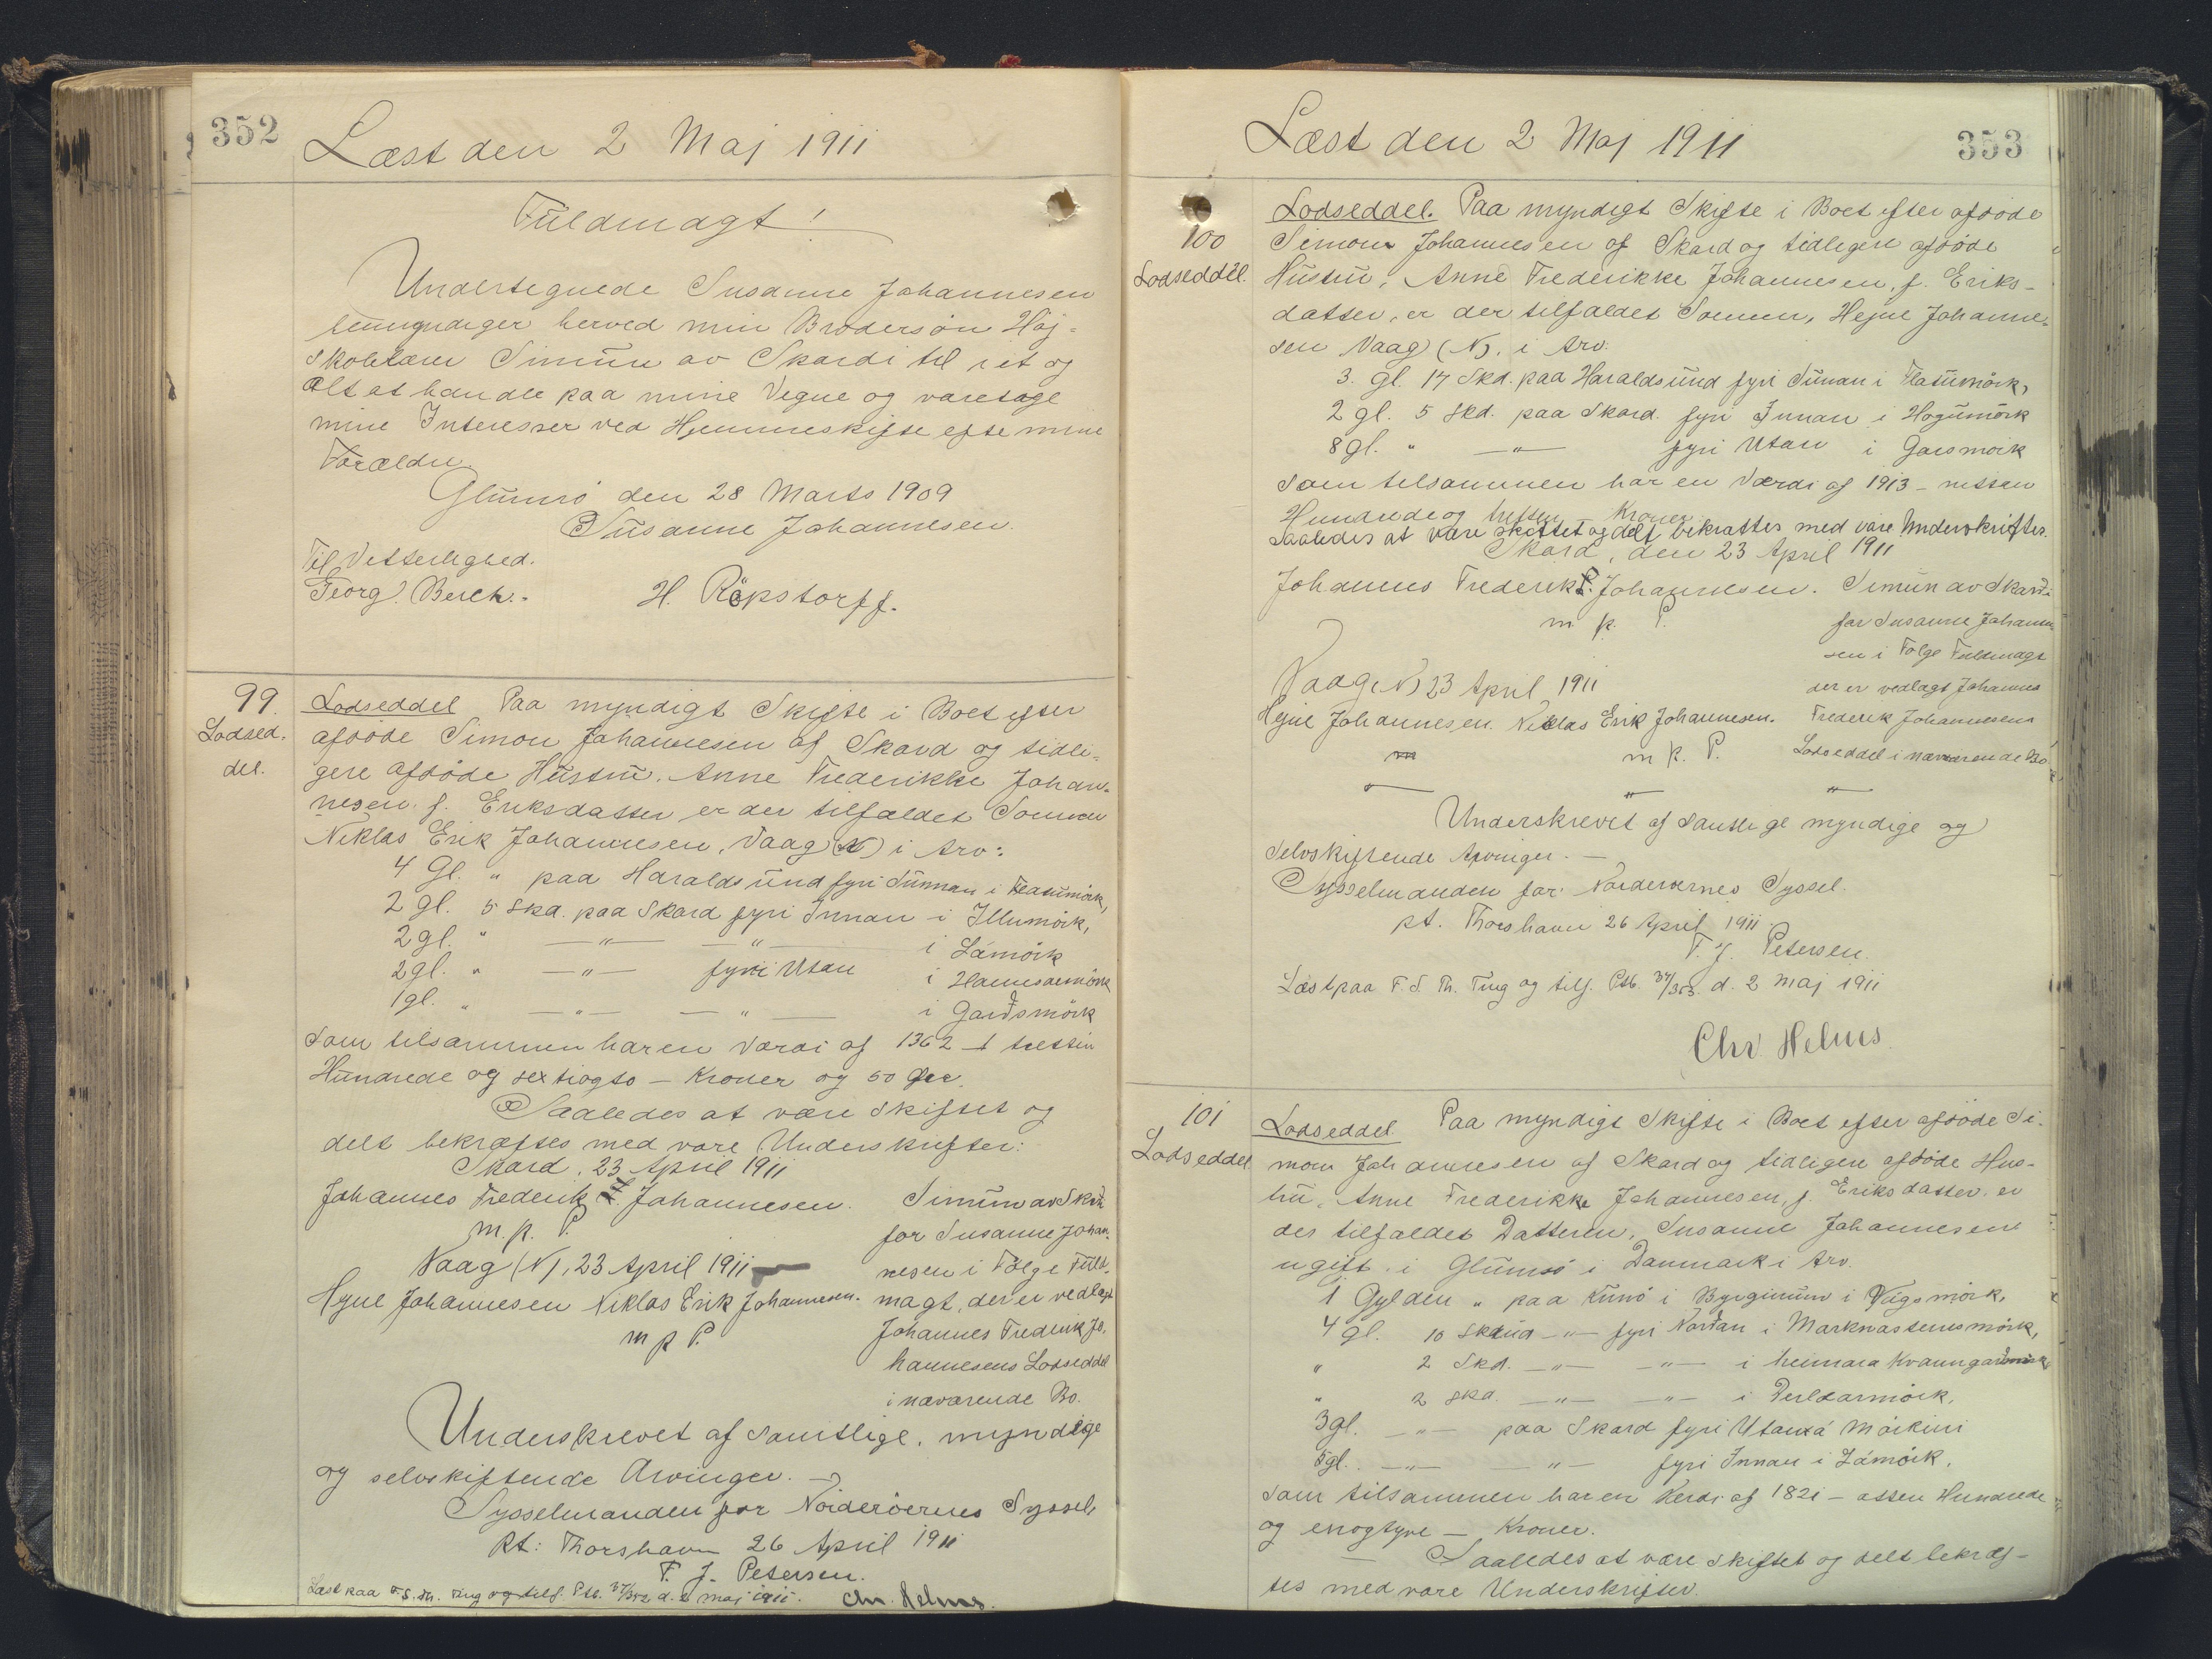 352
Læst den 2 Maj 1911
Fuldmagt!
Undertegnede Susanne Johannesen
bemyndiger herved min Brodersøn Høj-
skolelærer Simun av Skardi til ret og
Alt at handle paa mine Vegne og varetage
mine Interesser ved Hjemmeskifte efte mine
Forældre
Glumsö den 28 Marts 1909
Susanne Johannesen.
Til Vetterlighed.
Georg Berch. H. Röpstorff.
99.
Lodsed.
del.
Lodseddel Paa myndigt Skifte i Boet efter
afdöde Simon Johannesen af Skard og tidli-
gere afdöde Hustru, Anne Frederikke Johan-
nesen f. Eriksdatter er der tilfaldet Sönnen
Niklas Erik Johannesen, Vaag (N) i Arv:
4 Gl. " paa Haraldsund fyri Sunnan i Flatumörk,
2 gl. 5 Skd. paa Skard fyri Innan i Illumörk,
2 gl. " —"— —"— i Lámörk
2 gl. " —"— fyri Utan i Hannsarmörk
1 gl. " —"— —"— i Gardsmörk
Som tilsammen har en Værdi af 1362 – tretten
Hundrede og sextiogto – Kroner og 50 Öre.
Saaledes at være skiftet og
delt bekræftes med vore Underskrifter:
Skard, 23 April 1911
Johannes Frederik Johannesen. Simun av Skardi
m. p. P. for Susanne Johan-
Vaag (N), 23 April 1911 nesen i Følge Fuld-
Hejne Johannesen Niklas Erik Johannesen. magt, der er vedlagt
m p P. Johannes Frederik Jo-
hannesens Lodseddel
i nærværende Bo.
Underskrevet af samtlige, myndige
og selvskiftende Arvinger. —
Sysselmanden for Nörderöernes Syssel,
pt: Thorshavn 26 April 1911
F. J. Petersen.
Læst paa F. S. Th. Ting og tilf. Ptb. 37/352 d. 2 maj 1911. Chr. Helms.
Læst den 2 Maj 1911
353
100
Lodseddel.
Lodseddel. Paa myndigt Skifte i Boet efter afdöde
Simon Johannesen af Skard og tidligere afdöde
Hustru, Anne Frederikke Johannesen, f. Eriks-
datter, er der tilfaldet Sönnen, Hejne Johanne-
sen Vaag (N). i Arv:
3. gl. 17 Skd. paa Haraldsund fyri Sunnan i Flatumörk,
2 gl. 5 Skd. paa Skard fyri Innan i Hogumörk
8 gl. " —"— fyri Utan i Garsmörk
som tilsammen har en Værdi af 1913 – nitten
Hundrede og tretten Kroner
Saaledes at være skiftet og delt bekræftes med vore Underskrifter.
Skard, den 23 April 1911
Johannes Frederik Johannesen. Simun av Skardi
m p. P. for Susanne Johanne-
sen i Følge Fuldmagt
Vaag (N) 23 April 1911 der er vedlagt Johannes
Hejne Johannesen. Niklas Erik Johannesen. Frederik Johannesens
m p. P. Lodseddel i nærværende Bo
Underskrevet af samtlige myndige og
Selvskiftende Arvinger. —
Sysselmanden for Norderernes Syssel.
pt. Thorshavn 26 April 1911
F. J. Petersen.
Læst paa F. S. Th. Ting og tilf. Ptb. 37/353. d. 2 maj 1911
Chr. Helms.
101
Lodseddel.
Lodseddel. Paa myndigt Skifte i Boet efter afdöde Si-
mon Johannesen af Skard og tidligere afdöde Hus-
tru, Anne Frederikke Johannesen, f. Eriksdatter. er
der tilfaldet Datteren, Susanne Johannesen
ugift. i Glumsö i Danmark i Arv.
1 Gylden " paa Kunö i Bygdinum i Vágsmörk,
4 gl. 10 Skind —"— fyri Nordan i Marknastensmörk,
" 2 Skd. —"— —"— i heimara
" 2 Skd. —"— —"— i
3 gl. —"— paa Skard fyri Utan á Mörkini
5 gl. —"— —"— fyri Innan i Lámörk.
Som tilsammen har en Verdi af 1821 – atten Hundrede
og enogtyve – Kroner.
— Saaledes at være skiftet og delt bekræf-
tes med vore Underskrifter.